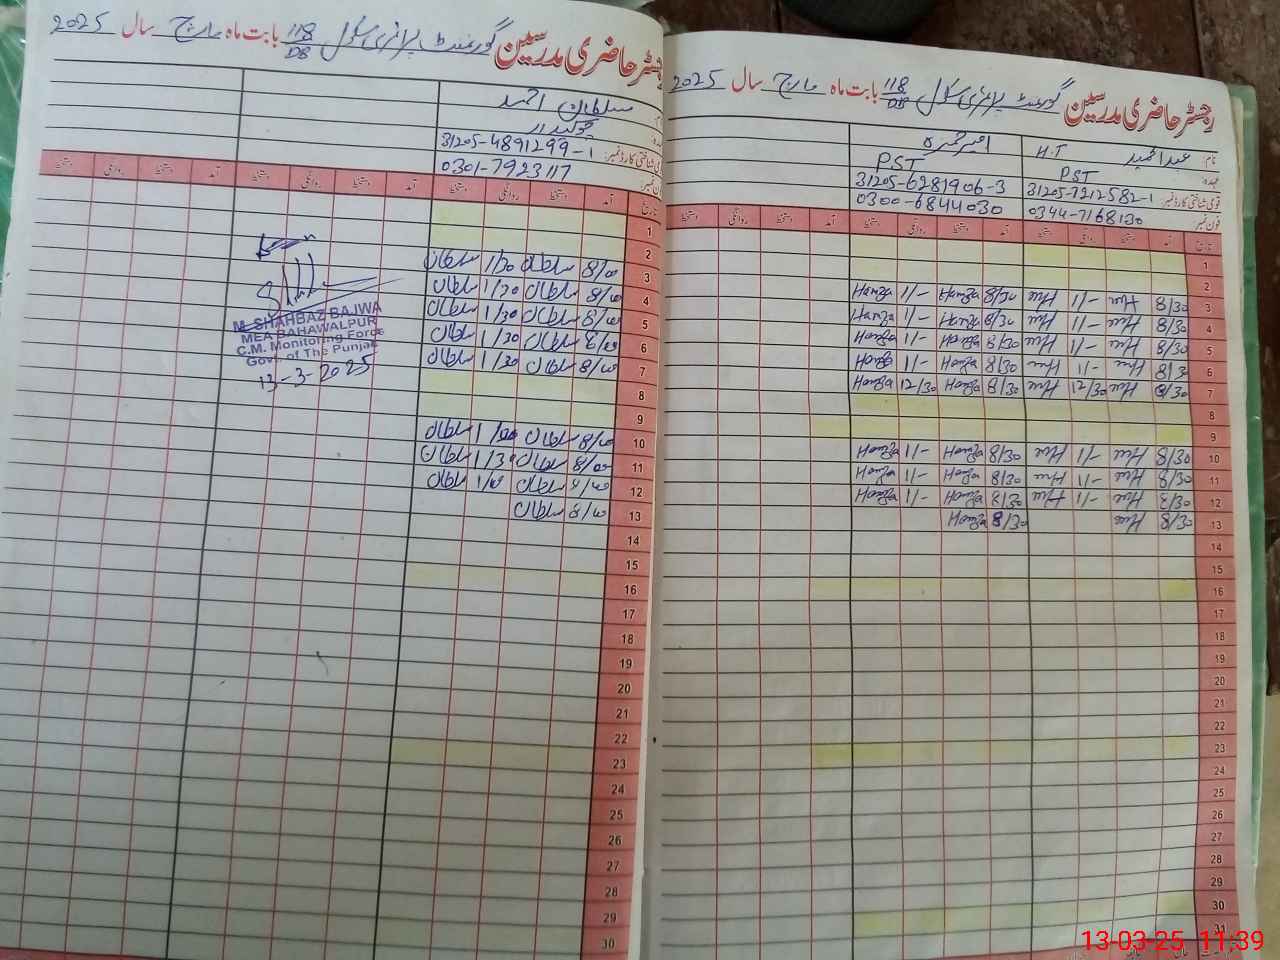 رجسٹر حاضری مدرسین گورنمنٹ پرائمری سکول 118/DB بابت ماہ مارچ سال 2025
نام: عبدالحمید H.T امیر حمزہ
عہدہ: PST PST
قومی شناختی کارڈ نمبر: 31205-7212582-1 31205-6281906-3
فون نمبر: 0344-7168130 0300-6844030
تاریخ آمد دستخط روانگی دستخط آمد دستخط روانگی دستخط آمد دستخط روانگی دستخط
1
2
3 8/30 1/- 8/30 Hamza 1/- Hamza
4 8/30 1/- 8/30 Hamza 1/- Hamza
5 8/30 1/- 8/30 Hamza 1/- Hamza
6 8/30 1/- 8/30 Hamza 1/- Hamza
7 8/30 12/30 8/30 Hamza 12/30 Hamza
8
9
10 8/30 1/- 8/30 Hamza 1/- Hamza
11 8/30 1/- 8/30 Hamza 1/- Hamza
12 8/30 1/- 8/30 Hamza 1/- Hamza
13 8/30 8/30 Hamza
14
15
16
17
18
19
20
21
22
23
24
25
26
27
28
29
30
31
رجسٹر حاضری مدرسین گورنمنٹ پرائمری سکول 118/DB بابت ماہ مارچ سال 2025
سلطان احمد
چوکیدار
31205-4891299-1
فون نمبر: 0301-7923117
تاریخ آمد دستخط روانگی دستخط آمد دستخط روانگی دستخط آمد دستخط روانگی دستخط
1
2
3 8/00 سلطان 1/30 سلطان
4 8/00 سلطان 1/30 سلطان
5 8/00 سلطان 1/30 سلطان
6 8/00 سلطان 1/30 سلطان
7 8/00 سلطان 1/30 سلطان
8
9
10 8/00 سلطان سلطان
11 8/00 سلطان 1/30 سلطان
12 8/00 سلطان سلطان
13 8/00 سلطان
14
15
16
17
18
19
20
21
22
23
24
25
26
27
28
29
30
M. SHAHBAZ BAJWA
MEA BAHAWALPUR
C.M. Monitoring Force
Govt. of The Punjab
13-3-2025
13-03-25 11:39